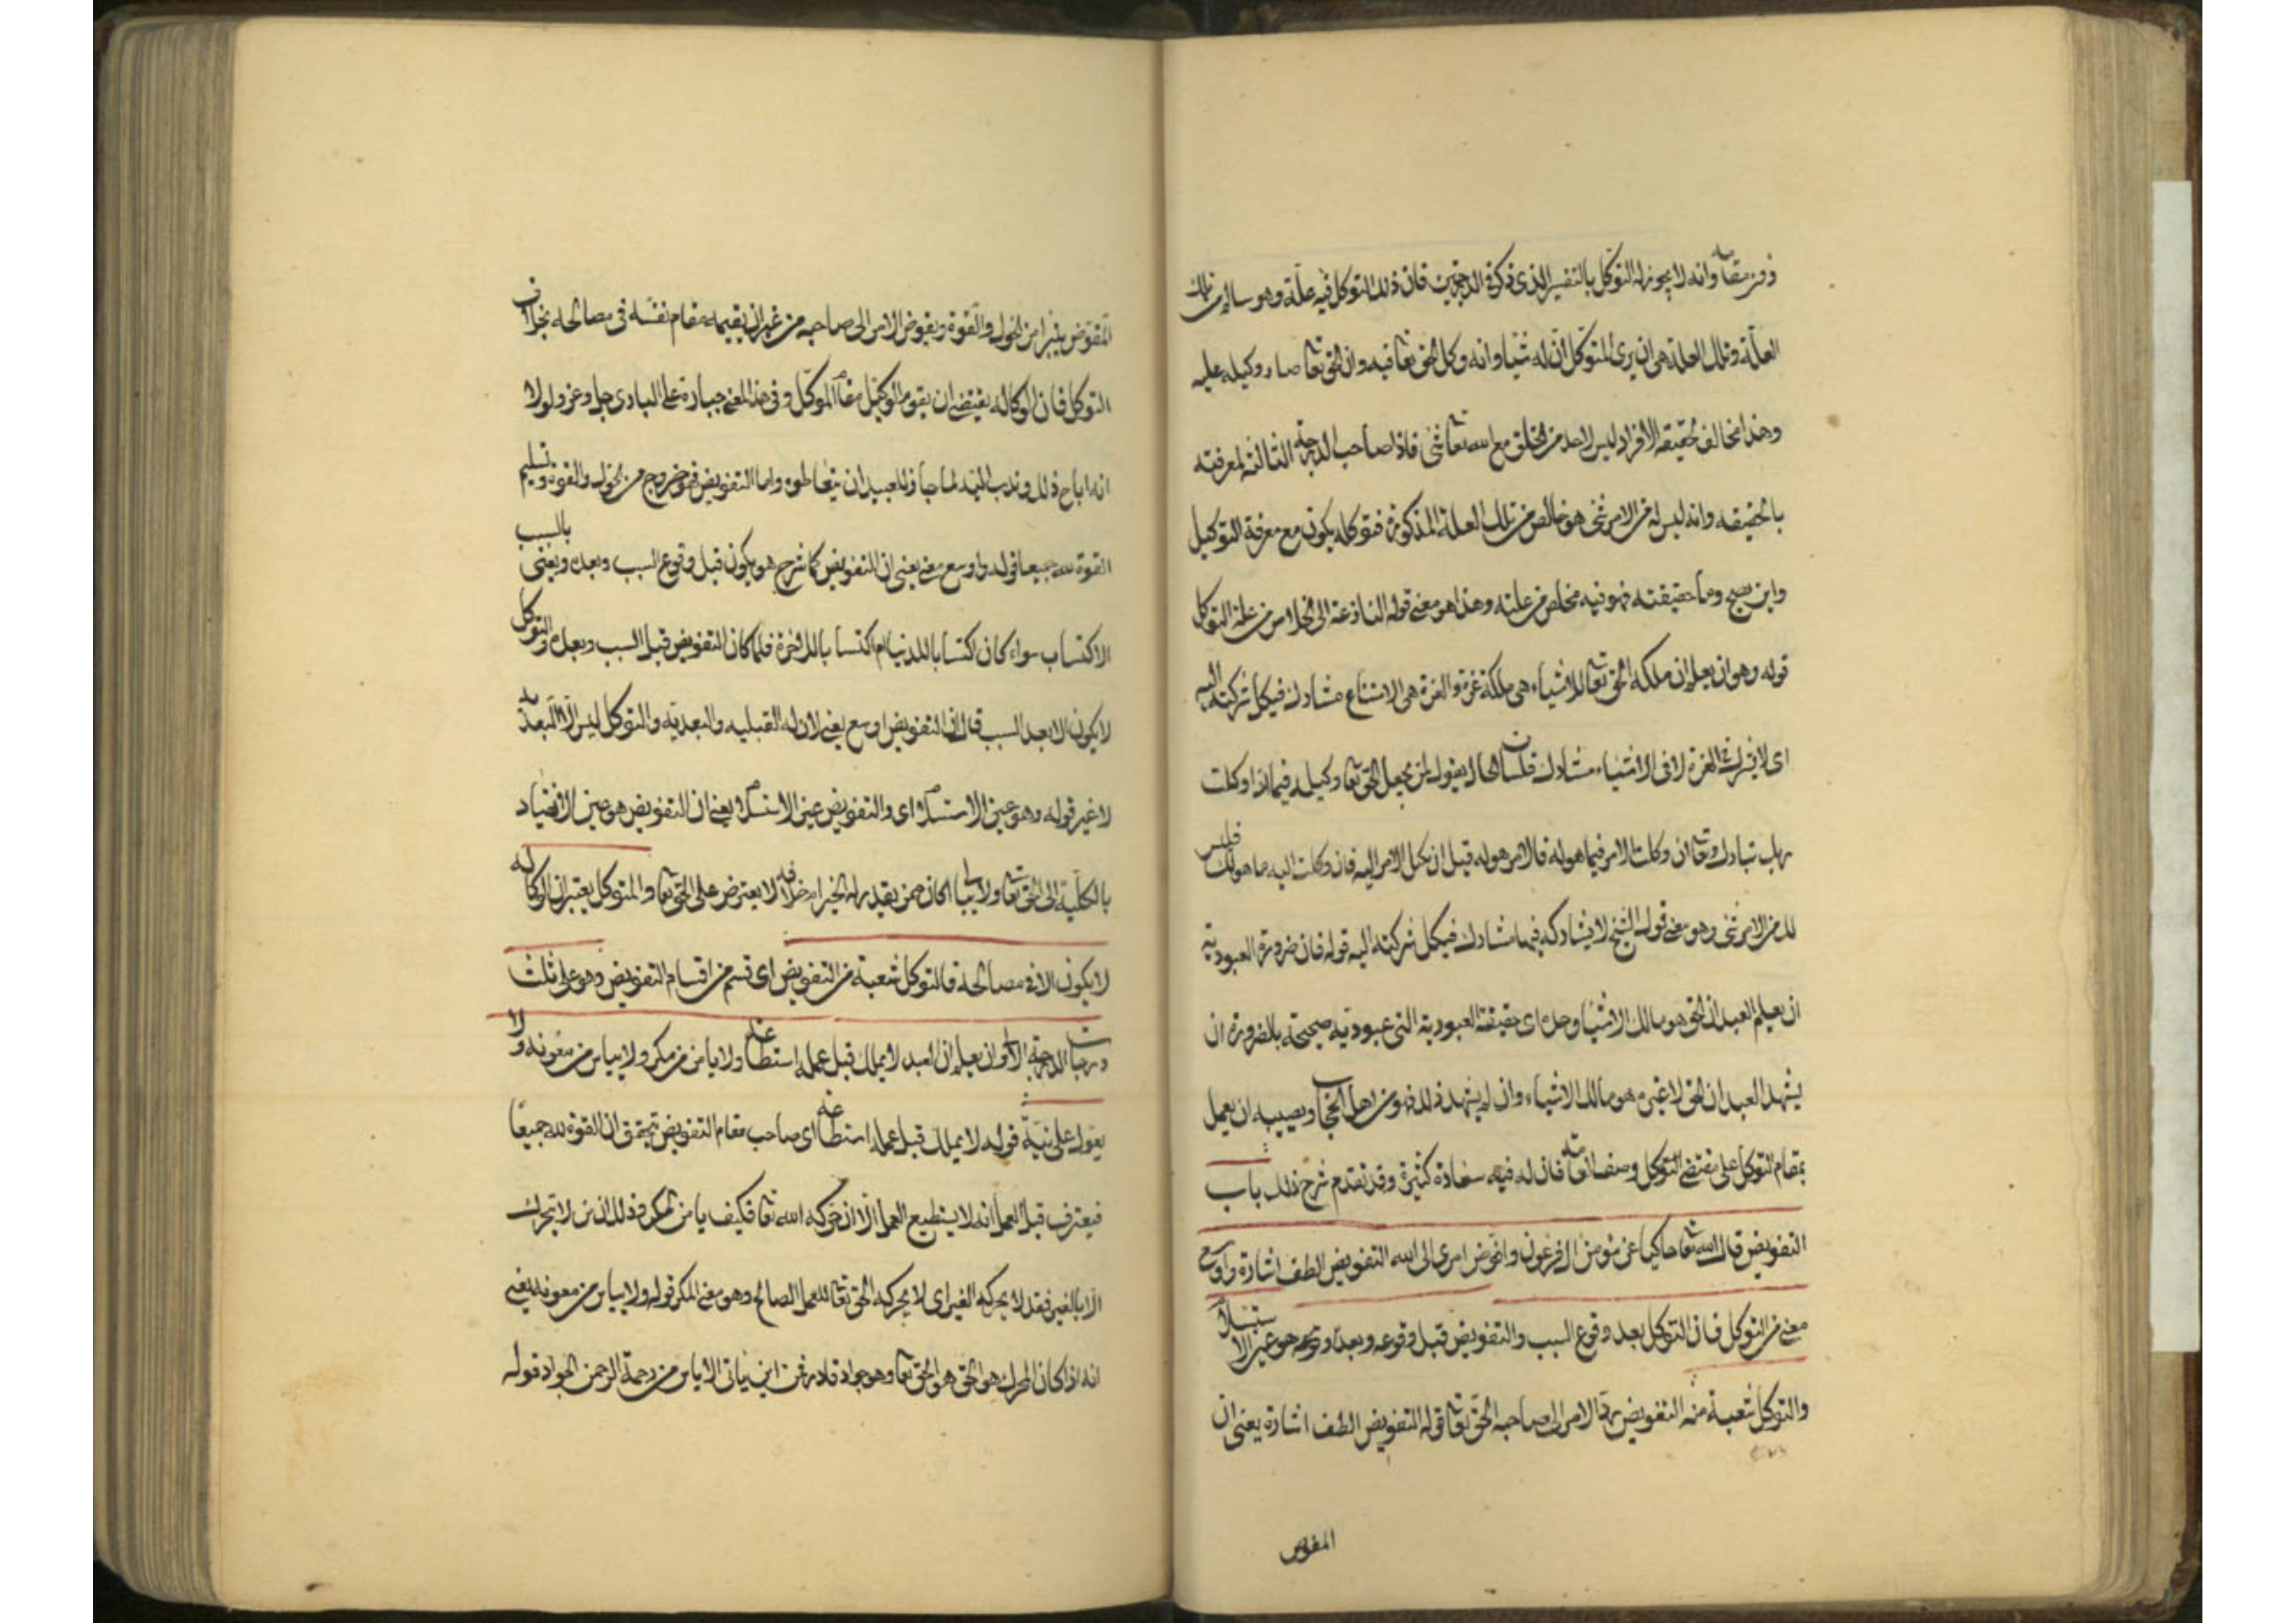 دون مقامه وانه لا يجوز له التوكل بالتفسير الذى ذكر فى الدرجتين فان ذلك التوكل فيه علة وهو سالم من تلك
العلة وتلك العلة هى ان يرى المتوكل ان له شيئا وانه وكل الحق تعا فيه وان الحق تعا صار وكيله عليه
وهذا مخالف لحقيقة الافراد ليس لاحد من الخلق مع الله تعا شئ فاذا صاحب الدرجة الثالثة لمعرفته
بالحقيقه وانه ليس له من الامر شئ هو خالص من تلك العلة المذكورة فتوكله يكون مع معرفة التوكيل
واين يصح وما حقيقته فهو فيه مخلص من علته وهذا هو معنى قوله النازعة الى الخلاص من علة التوكل
قوله وهو ان يعلم ان ملكة الحق تعا للاشياء هى ملكة عزة والعزة هى الامتناع مشارك فيكل شركته اليه
اى لا يشرك فى العزة لا فى الاشياء مشارك فلسان الحال يقول لمن يجعل الحق تعا وكيله فيماذا وكلت
ربك تبارك وتعا ان وكلت الامر فيما هو له فالامر هو له قبل ان تكل الامر اليه فان وكلت اليه ما هو لك فليس
لك من الامر شئ وهو معنى قول الشيخ لا يشاركه فيها مشارك فيكل شركته اليه قوله فان ضرورة العبودية
ان يعلم العبد ان الحق هو مالك الاشياء وحده اى حقيقة العبودية التى عبوديه صحيحة بالضرورة ان
يشهد العبد ان الحق لا غيره هو مالك الاشياء وان لم يشهد ذلك فهو من اهل الحجاب ويصيبه ان يعمل
بمقام التوكل على مقتضى التوكل وصفا مقامه فان له فيه سعادة كثيرة وقد تقدم شرح ذلك باب
التفويض قال الله تعا حاكيا عن مؤمن ال فرعون وافوض امرى الى الله التفويض الطف اشارة واوسع
معنى من التوكل فان التوكل بعد وقوع السبب والتفويض قبل وقوعه وبعده وهو عين الاستسلام
والتوكل شعبة منه التفويض رد الامر الى صاحبه الحق تعا قوله التفويض الطف اشارة يعنى ان
المفوض
المفوض يتبرا من الحول والقوة ويفوض الامر الى صاحبه من غير ان يقيمه مقام نفسه فى مصالحه بخلاف
التوكل فان الوكاله يقتضى ان يقوم الوكيل مقام الموكل وفى هذا المعنى جسارة على البارى جل وعز ولولا
انه اباح ذلك وندب اليه لما جاز للعبيد ان يتعاطوه واما التفويض فهو خروج من الحول والقوة وتسليم
القوة لله جميعا قوله واوسع معنى يعنى ان التفويض كما شرح هو يكون قبل وقوع السبب وبعده ويعنى بالسبب
الاكتساب سواء كان اكتسابا للدنيا ام اكتسابا للاخرة فلما كان التفويض قبل السبب وبعده والتوكل
لا يكون الا بعد السبب قال ان التفويض اوسع يعنى لان له القبليه والبعديه والتوكل ليس له الا البعديه
لا غير قوله وهو عين الاستسلام اى والتفويض عين الاستسلام يعنى ان التفويض هو عين الانقياد
بالكلية الى الحق تعا ولا يبالى اكان ممن يقدر له الخير ام خلافه لا يعترض على الحق تعا والمتوكل يعتبر ان الوكاله
لا يكون الا فى مصالحه فالتوكل شعبة من التفويض اى قسم من اقسام التفويض وهو على ثلث
درجات الدرجة الاولى ان يعلم ان العبد لا يملك قبل عمله استطاعة ولا يامن من مكر ولا يياس من معونه ولا
يعول على نية قوله لا يملك قبل عمله استطاعة اى صاحب مقام التفويض تحقق ان القوة لله جميعا
فيعترف قبل العمل انه لا يستطيع العمل الا ان حركه الله تعا فكيف يامن المكر وذلك ان من لا يتحرك
الا بالغير فقد لا يحركه الغير اى لا يحركه الحق تعا للعمل الصالح وهو معنى المكر قوله ولا يياس من معونه يعنى
انه اذا كان المحرك هو الحق هو الحق تعا وهو جواد قادر فمن اين ياتى الاياس من رحمة الرحمن الجواد قوله